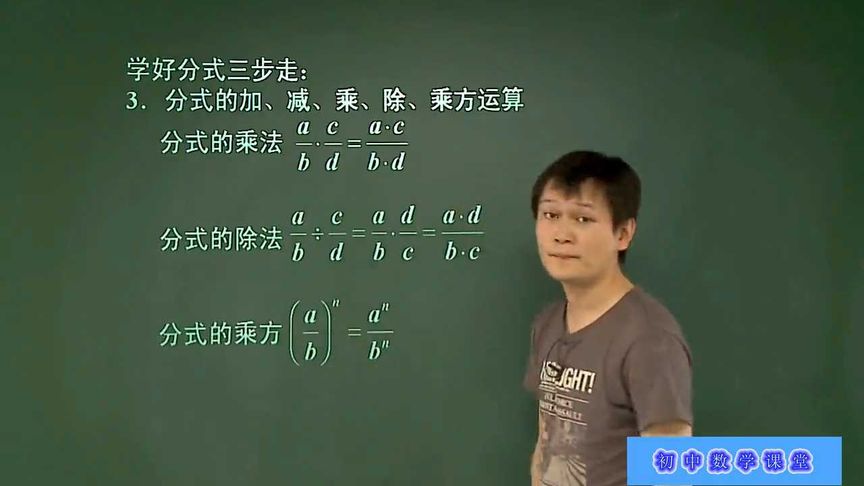 学好分式三步走：
3. 分式的加、减、乘、除、乘方运算
分式的乘法 a/b · c/d = a·c/b·d
分式的除法 a/b ÷ c/d = a/b · d/c = a·d/b·c
分式的乘方 (a/b)^n = a^n/b^n
GHT!
初中数学课堂